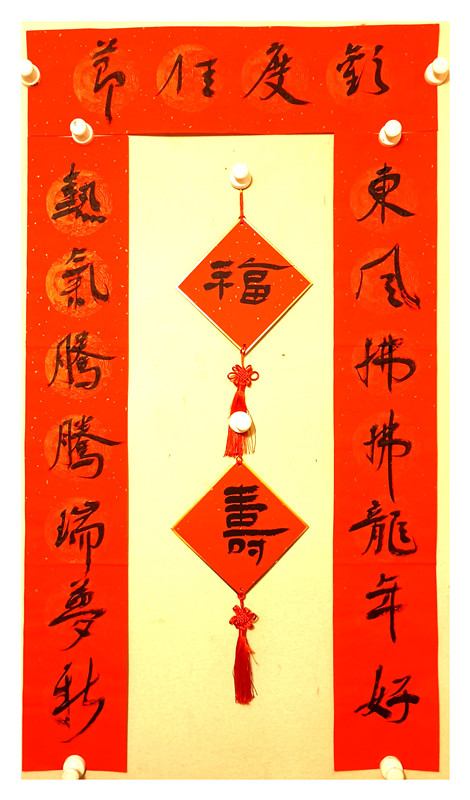 歡度佳節
東風拂拂龍年好
熱氣騰騰瑞夢新
福
壽